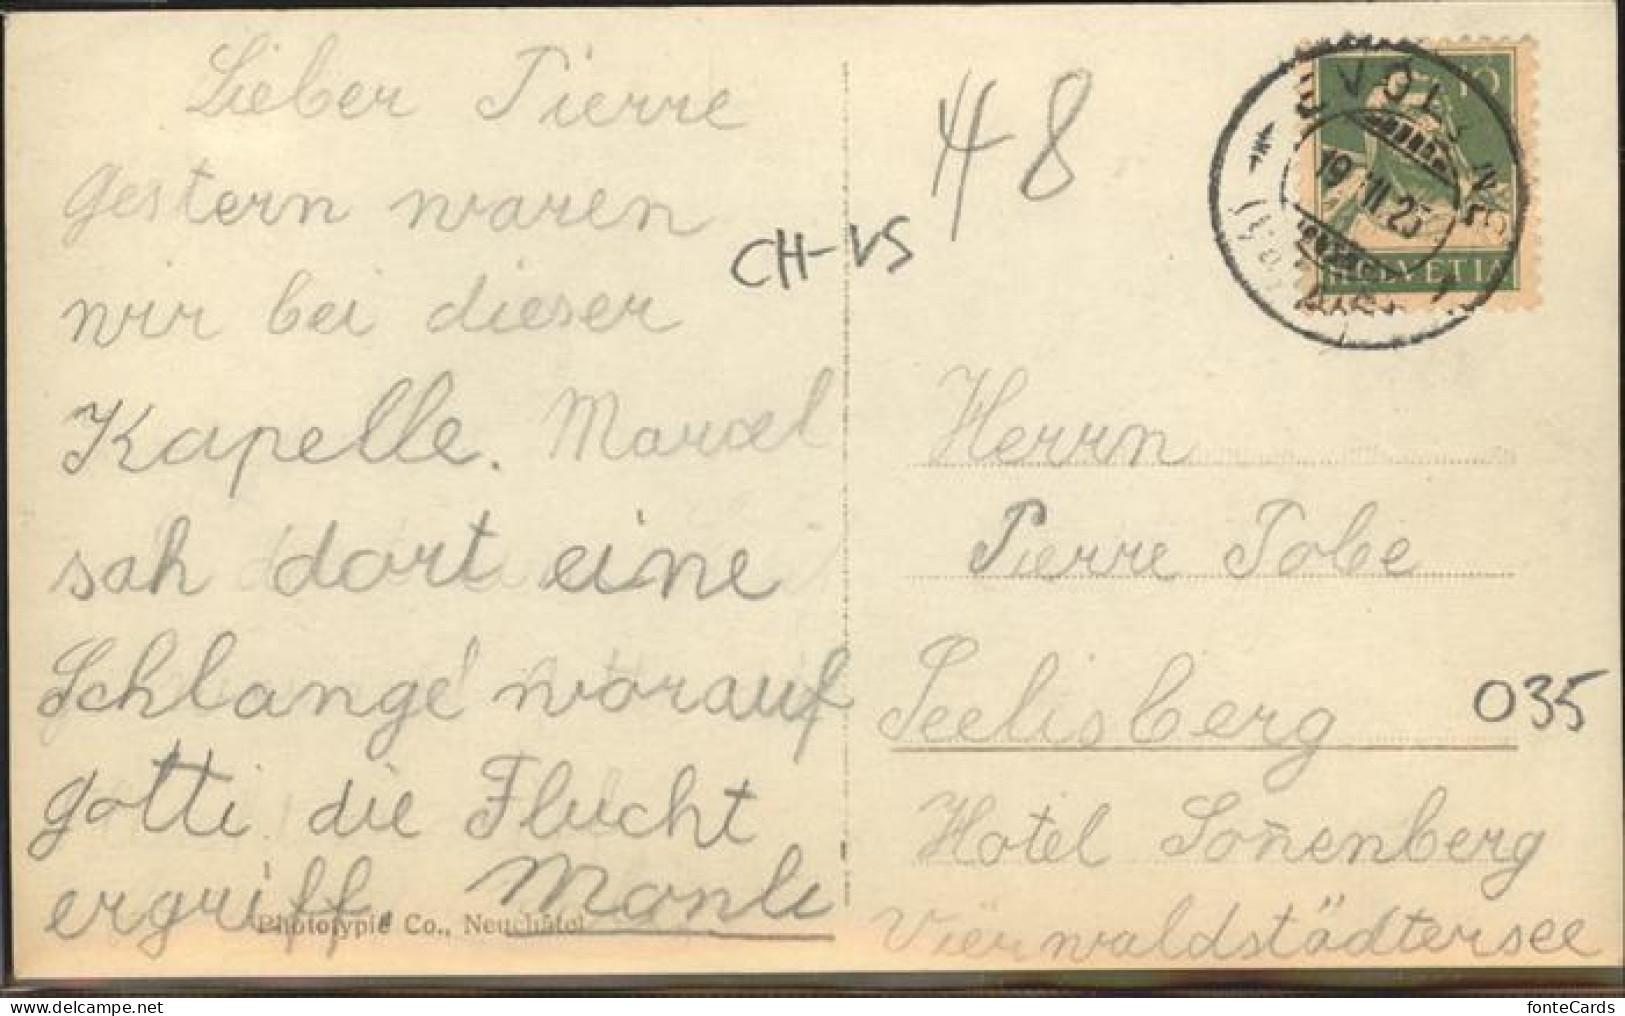 Lieber Pierre
gestern waren
wir bei dieser
Kapelle. Marcel
sah dort eine
Schlange worauf
gotti die Flucht
ergriff Monli
Phototypie Co., Neuchâtel
48
CH-VS
10
HELVETIA
19. 25
Herrn
Pierre Tobe
Seelisberg
035
Hotel Soñenberg
Vierwaldstädtersee
fonteCards